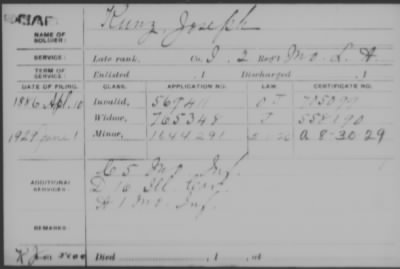 NAME OF SOLDIER: Kunz, Joseph
SERVICE: Late rank, Co. I, 2 Reg't Mo. L. A.
TERM OF SERVICE: Enlisted , 1 Discharged , 1
DATE OF FILING. CLASS. APPLICATION NO. LAW. CERTIFICATE NO.
1886 Apl. 10 Invalid, 567411
1929 June 1 Widow, 765348 558190
Minor, 1644291 A 8-30-29
ADDITIONAL SERVICES: 5 Mo. Inf.
D 16 Ill Cav.
H 1 Mo. Inf.
REMARKS:
Died , 1 , at